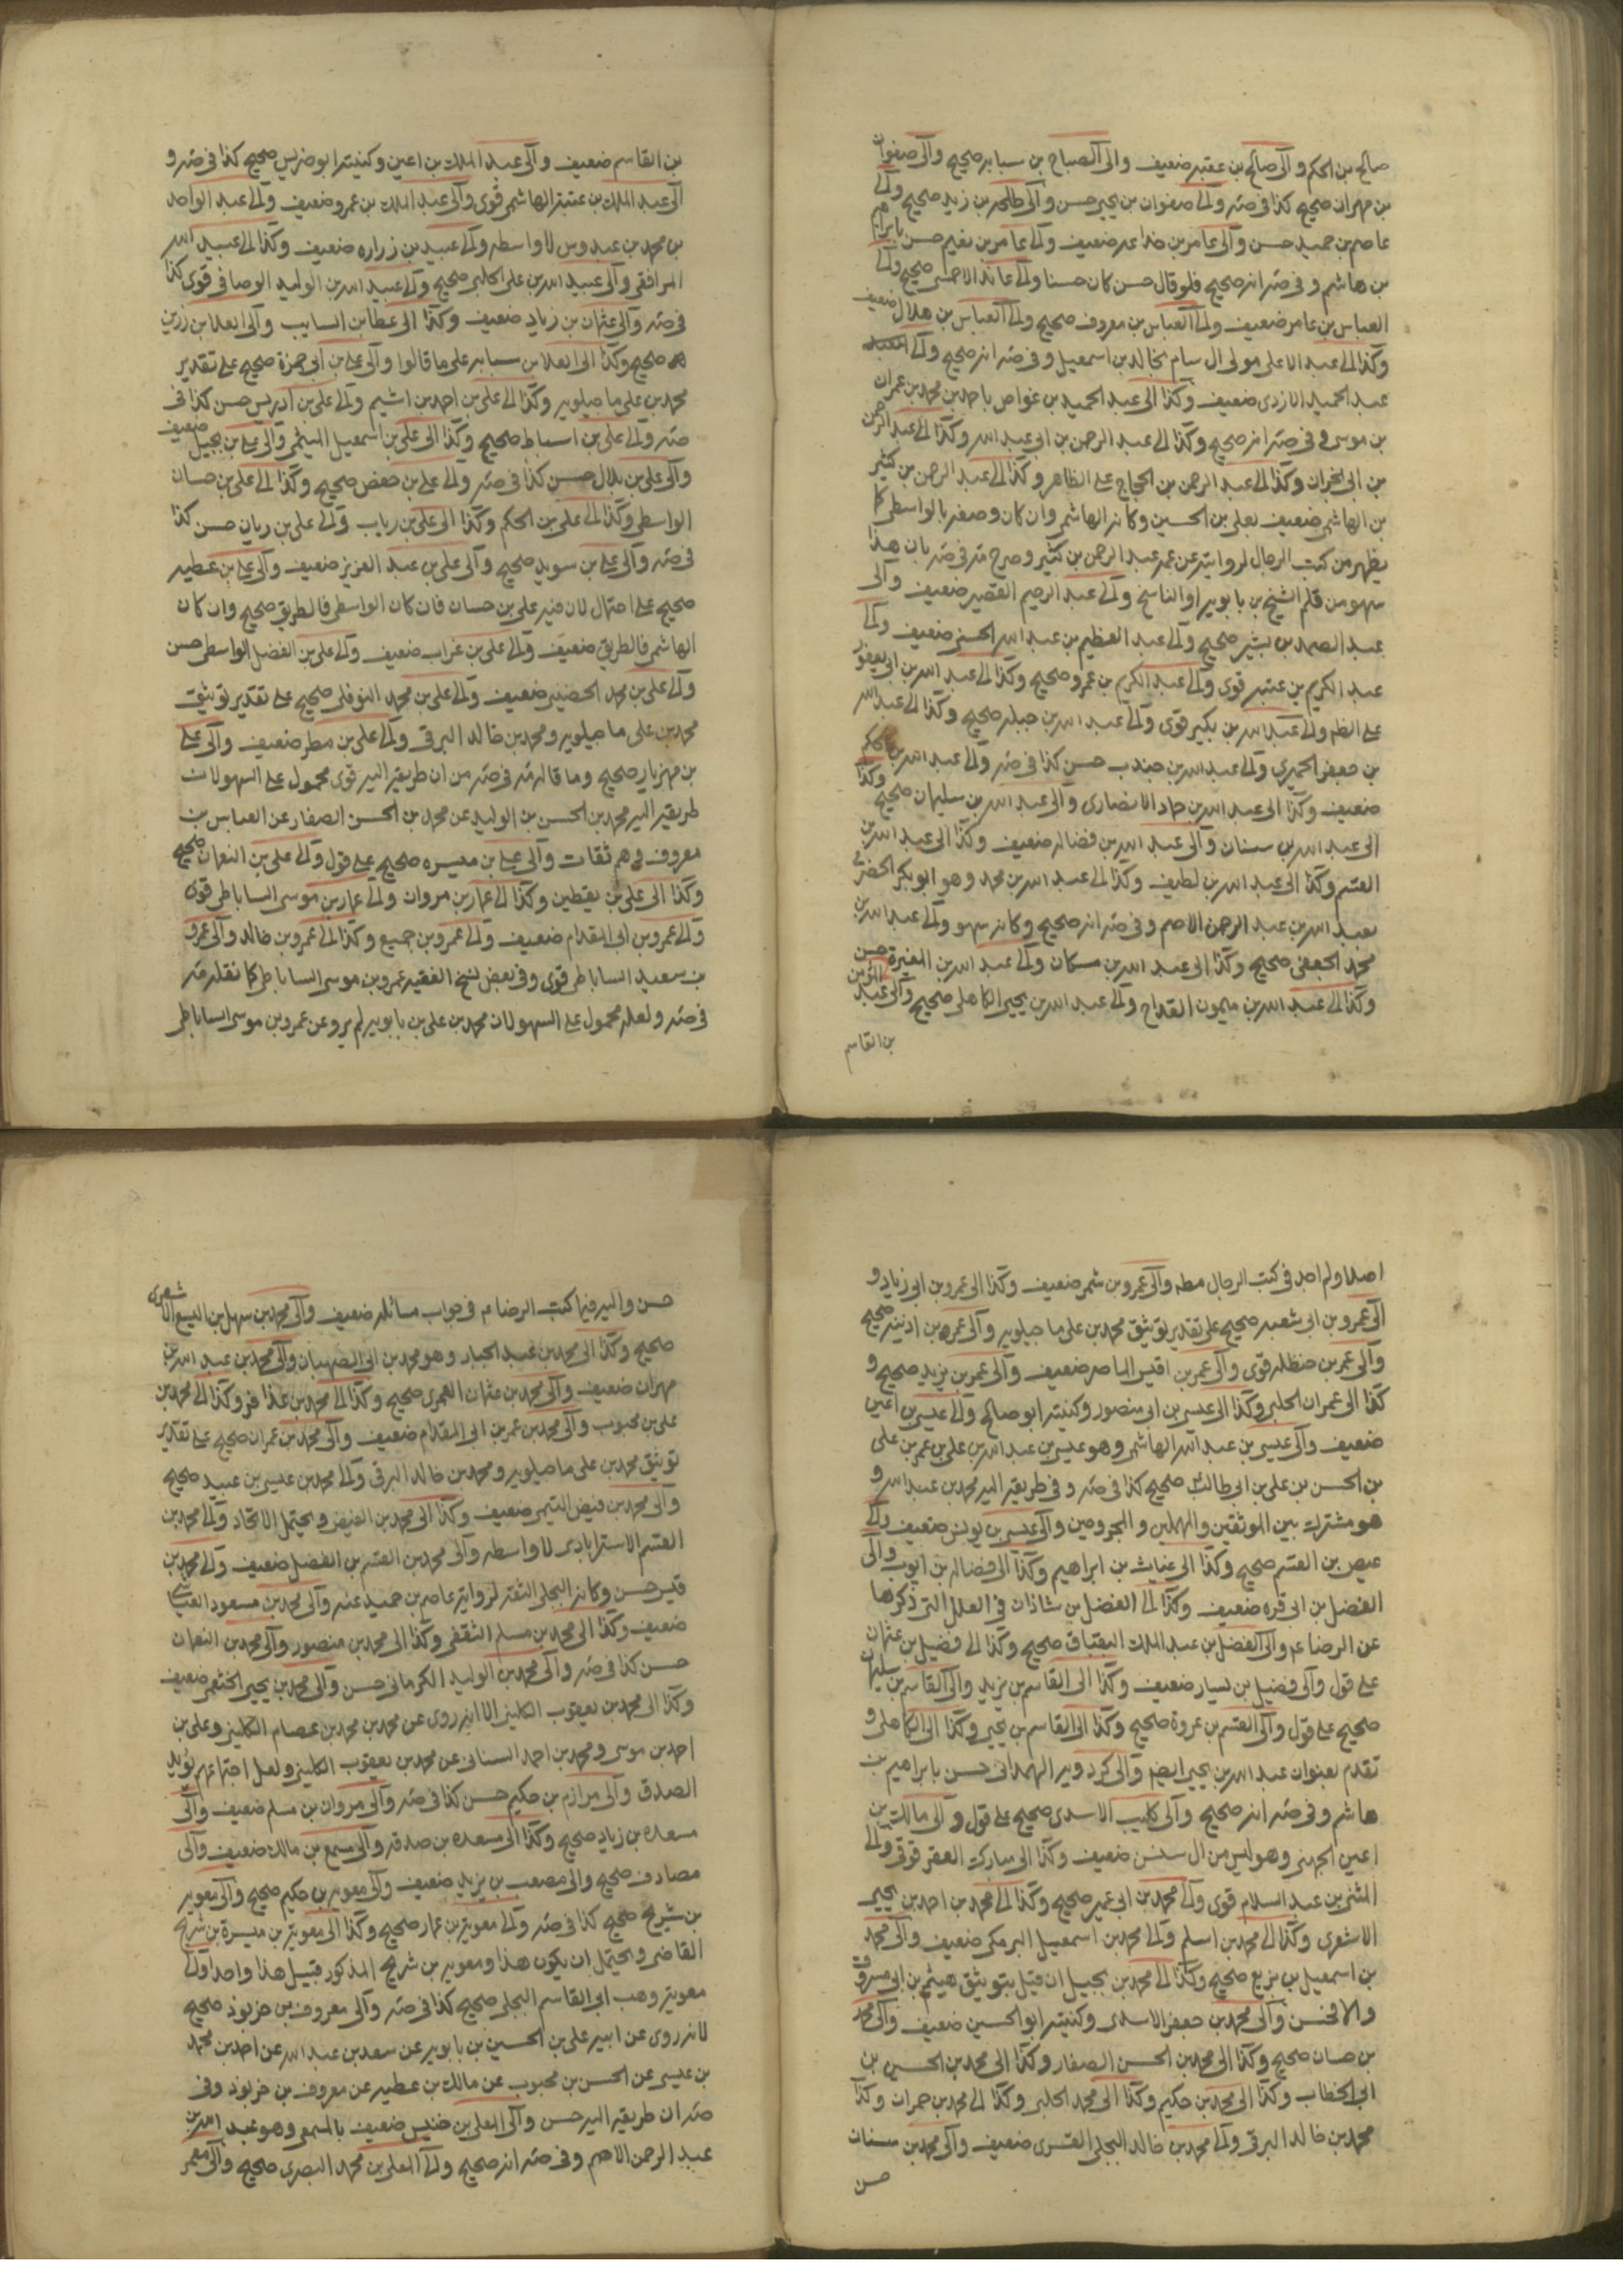 صالح بن الحكم والى صالح بن عقبه ضعيف والى الصباح بن سبابه صحيح والى صفوان
بن مهران صحيح كذا فى صه والى صفوان بن يحيى حسن والى طلحه بن زيد صحيح والى
عاصم بن حميد حسن والى عامر بن جذاعه ضعيف والى عامر بن نعيم حسن بابراهيم
بن هاشم وفى صه انه صحيح فلو قال حسن كان حسنا والى عائذ الاحمسى صحيح والى
العباس بن عامر ضعيف والى العباس بن معروف صحيح والى العباس بن هلال ضعيف
وكذا الى عبد الاعلى مولى ال سام بخالد بن اسمعيل وفى صه انه صحيح والى
عبد الحميد الازدى ضعيف وكذا الى عبد الحميد بن غواص باحمد بن محمد بن عمران
بن موسى وفى صه انه صحيح وكذا الى عبد الرحمن بن ابى عبد الله وكذا الى عبد الرحمن
بن ابى نجران وكذا الى عبد الرحمن بن الحجاج على الظاهر وكذا الى عبد الرحمن بن كثير
بن الهاشمى ضعيف بعلى بن الحسين وكانه الهاشمى وان كان وصفه بالواسطى كا
يظهر من كتب الرجال لروايته عن عمه عبد الرحمن بن كثير وصرح مه فى صه بان هذا
سهو من قلم الشيخ بن بابويه او الناسخ والى عبد الرحيم القصير ضعيف والى
عبد الصمد بن بشير صحيح والى عبد العظيم بن عبد الله الحسنى ضعيف والى
عبد الكريم بن عتبه قوى والى عبد الكريم بن عمرو صحيح وكذا الى عبد الله بن ابى يعفور
على الظ والى عبد الله بن بكير قوى والى عبد الله بن جبله صحيح وكذا الى عبد الله
بن جعفر الحميرى والى عبد الله بن جندب حسن كذا فى صه والى عبد الله بن الحكم
ضعيف وكذا الى عبد الله بن حماد الانصارى والى عبد الله بن سليمان صحيح وكذا
الى عبد الله بن سنان والى عبد الله بن فضاله ضعيف وكذا الى عبد الله بن
القسم وكذا الى عبد الله بن لطيف وكذا الى عبد الله بن محمد وهو ابو بكر الحضرمى
بعبد الله بن عبد الرحمن الاصم وفى صه انه صحيح وكانه سهو والى عبد الله بن
محمد الجعفى صحيح وكذا الى عبد الله بن مسكان والى عبد الله بن المغيرة حسن
وكذا الى عبد الله بن ميمون القداح والى عبد الله بن يحيى الكاهلى صحيح والى عبد المؤمن
بن القاسم
بن القاسم ضعيف والى عبد الملك بن اعين وكنيته ابو ضريس صحيح كذا فى صه و
الى عبد الملك بن عتبة الهاشمى قوى والى عبد الملك بن عمرو ضعيف والى عبد الواحد
بن محمد بن عبدوس لا واسطه والى عبيد بن زراره ضعيف وكذا الى عبيد الله
المرافقى والى عبيد الله بن على الحلبى صحيح والى عبيد الله بن الوليد الوصافى قوى كذا
فى صه والى عثمان بن زياد ضعيف وكذا الى عطا بن السايب والى العلا بن رزين
صحيح وكذا الى العلا بن سيابه على ما قالوا والى على بن ابى حمزة صحيح على تقدير
محمد بن على ماجيلويه وكذا الى على بن احمد بن اشيم والى على بن ادريس حسن كذا فى
صه والى على بن اسباط صحيح وكذا الى على بن اسمعيل الميثمى والى على بن بجيل ضعيف
والى على بن بلال حسن كذا فى صه والى على بن جعفر صحيح وكذا الى على بن حسان
الواسطى وكذا الى على بن الحكم وكذا الى على بن رياب والى على بن ريان حسن كذا
فى صه والى على بن سويد صحيح والى على بن عبد العزيز ضعيف والى على بن عطيه
صحيح على احتمال لان فيه على بن حسان فان كان الواسطى فالطريق صحيح وان كان
الهاشمى فالطريق ضعيف والى على بن غراب ضعيف والى على بن الفضل الواسطى حسن
والى على بن محمد الحضينى ضعيف والى على بن محمد النوفلى صحيح على تقدير توثيق
محمد بن على ماجيلويه ومحمد بن خالد البرقى والى على بن مطر ضعيف والى على
بن مهزيار صحيح وما قاله مه فى صه من ان طريقه اليه قوى محمول على السهو لان
طريقه اليه محمد بن الحسن بن الوليد عن محمد بن الحسن الصفار عن العباس بن
معروف وهم ثقات والى على بن ميسره صحيح على قول والى على بن النعمان صحيح
وكذا الى على بن يقطين وكذا الى عمار بن مروان والى عمار بن موسى الساباطى قوى
والى عمرو بن ابى المقدام ضعيف والى عمرو بن جميع وكذا الى عمرو بن خالد والى عمرو
بن سعيد الساباطى قوى وفى بعض نسخ الفقيه عمرو بن موسى الساباطى كما نقله مه
فى صه ولعله محمول على السهو لان محمد بن على بن بابويه لم يرو عن عمرو بن موسى الساباطى
اصلا ولم اجد فى كتب الرجال مطه والى عمرو بن شمر ضعيف وكذا الى عمرو بن ابى زياد و
الى عمرو بن ابى شعبه صحيح على تقدير توثيق محمد بن على ماجيلويه والى عمر بن اذينه صحيح
والى عمر بن حنظله قوى والى عمر بن قيس الماصر ضعيف والى عمر بن يزيد صحيح و
كذا الى عمران الحلبى وكذا الى عيسى بن ابى منصور وكنيته ابو صالح والى عيسى بن اعين
ضعيف والى عيسى بن عبد الله الهاشمى وهو عيسى بن عبد الله بن على بن عمر بن على
بن الحسن بن على بن ابى طالب صحيح كذا فى صه وفى طريقه اليه محمد بن عبد الله و
هو مشترك بين الموثقين والمهملين والمجروحين والى عيسى بن يونس ضعيف والى
عيص بن القسم صحيح وكذا الى غياث بن ابراهيم وكذا الى فضاله بن ايوب والى
الفضل بن ابى قره ضعيف وكذا الى الفضل بن شاذان فى العلل التى ذكرها
عن الرضا ع م والى الفضل بن عبد الملك البقباق صحيح وكذا الى فضيل بن عثمان
على قول والى فضيل بن يسار ضعيف وكذا الى القاسم بن يزيد والى القاسم بن سليمان
صحيح على قول والى القسم بن عروة صحيح وكذا الى القاسم بن يحيى وكذا الى الكاهلى و
تقدم بعنوان عبد الله بن يحيى ايضا والى كردويه الهمدانى حسن بابراهيم بن
هاشم وفى صه انه صحيح والى كليب الاسدى صحيح على قول والى مالك بن
اعين الجهنى وهو ليس من ال سنسن ضعيف وكذا الى مبارك العقرقوقى والى
المثنى بن عبد السلام قوى والى محمد بن ابى عمير صحيح وكذا الى محمد بن احمد بن يحيى
الاشعرى وكذا الى محمد بن اسلم والى محمد بن اسمعيل البرمكى ضعيف والى محمد
بن اسمعيل بن بزيع صحيح وكذا الى محمد بن بجيل ان قيل بتوثيق هيثم بن ابى مسروق
والا فحسن والى محمد بن جعفر الاسدى وكنيته ابو الحسين ضعيف والى محمد
بن حسان صحيح وكذا الى محمد بن الحسن الصفار وكذا الى محمد بن الحسين بن
ابى الخطاب وكذا الى محمد بن حكيم وكذا الى محمد الحلبى وكذا الى محمد بن حمران وكذا
محمد بن خالد البرقى والى محمد بن خالد البجلى القسرى ضعيف والى محمد بن سنان
حسن
حسن واليه فيما كتب الرضا ع م فى جواب مسائله ضعيف والى محمد بن سهل بن اليسع الاشعرى
صحيح وكذا الى محمد بن عبد الجبار وهو محمد بن ابى الصهبان والى محمد بن عبد الله بن
مهران ضعيف والى محمد بن عثمان العمرى صحيح وكذا الى محمد بن عذافر وكذا الى محمد بن
على بن محبوب والى محمد بن عمر بن ابى المقدام ضعيف والى محمد بن عمران صحيح على تقدير
توثيق محمد بن على ماجيلويه ومحمد بن خالد البرقى والى محمد بن عيسى بن عبيد صحيح
والى محمد بن فيض التيمى ضعيف وكذا الى محمد بن الفيض ويحتمل الاتحاد والى محمد بن
القسم الاسترابادى لا واسطه والى محمد بن القسم بن الفضل ضعيف والى محمد بن
قيس حسن وكانه البجلى الثقه لرواية عاصم بن حميد عنه والى محمد بن مسعود العياشى
ضعيف وكذا الى محمد بن مسلم الثقفى وكذا الى محمد بن منصور والى محمد بن النعمان
حسن كذا فى صه والى محمد بن الوليد الكرمانى حسن والى محمد بن يحيى الخثعمى ضعيف
وكذا الى محمد بن يعقوب الكلينى الا انه روى عن محمد بن محمد بن عصام الكلينى وعلى بن
احمد بن موسى ومحمد بن احمد السنانى عن محمد بن يعقوب الكلينى ولعل اجتماعهم يؤيد
الصدق والى مرازم بن حكيم حسن كذا فى صه والى مروان بن مسلم ضعيف والى
مسعده بن زياد صحيح وكذا الى مسعده بن صدقه والى مسمع بن مالك ضعيف والى
مصادف صحيح والى مصعب بن يزيد ضعيف والى معويه بن حكيم صحيح والى معويه
بن شريح صحيح كذا فى صه والى معويه بن عمار صحيح وكذا الى معويه بن ميسرة بن شريح
القاضى ويحتمل ان يكون هذا ومعويه بن شريح المذكور قبيل هذا واحدا والى
معويه بن وهب ابى القاسم البجلى صحيح كذا فى صه والى معروف بن خربوذ صحيح
لانه روى عن ابيه على بن الحسين بن بابويه عن سعد بن عبد الله عن احمد بن محمد
بن عيسى عن الحسن بن محبوب عن مالك بن عطيه عن معروف بن خربوذ وفى
صه ان طريقه اليه حسن والى المعلى بن خنيس ضعيف بالمسمعى وهو عبد الله بن
عبد الرحمن الاصم وفى صه انه صحيح والى المعلى بن محمد البصرى صحيح والى معمر